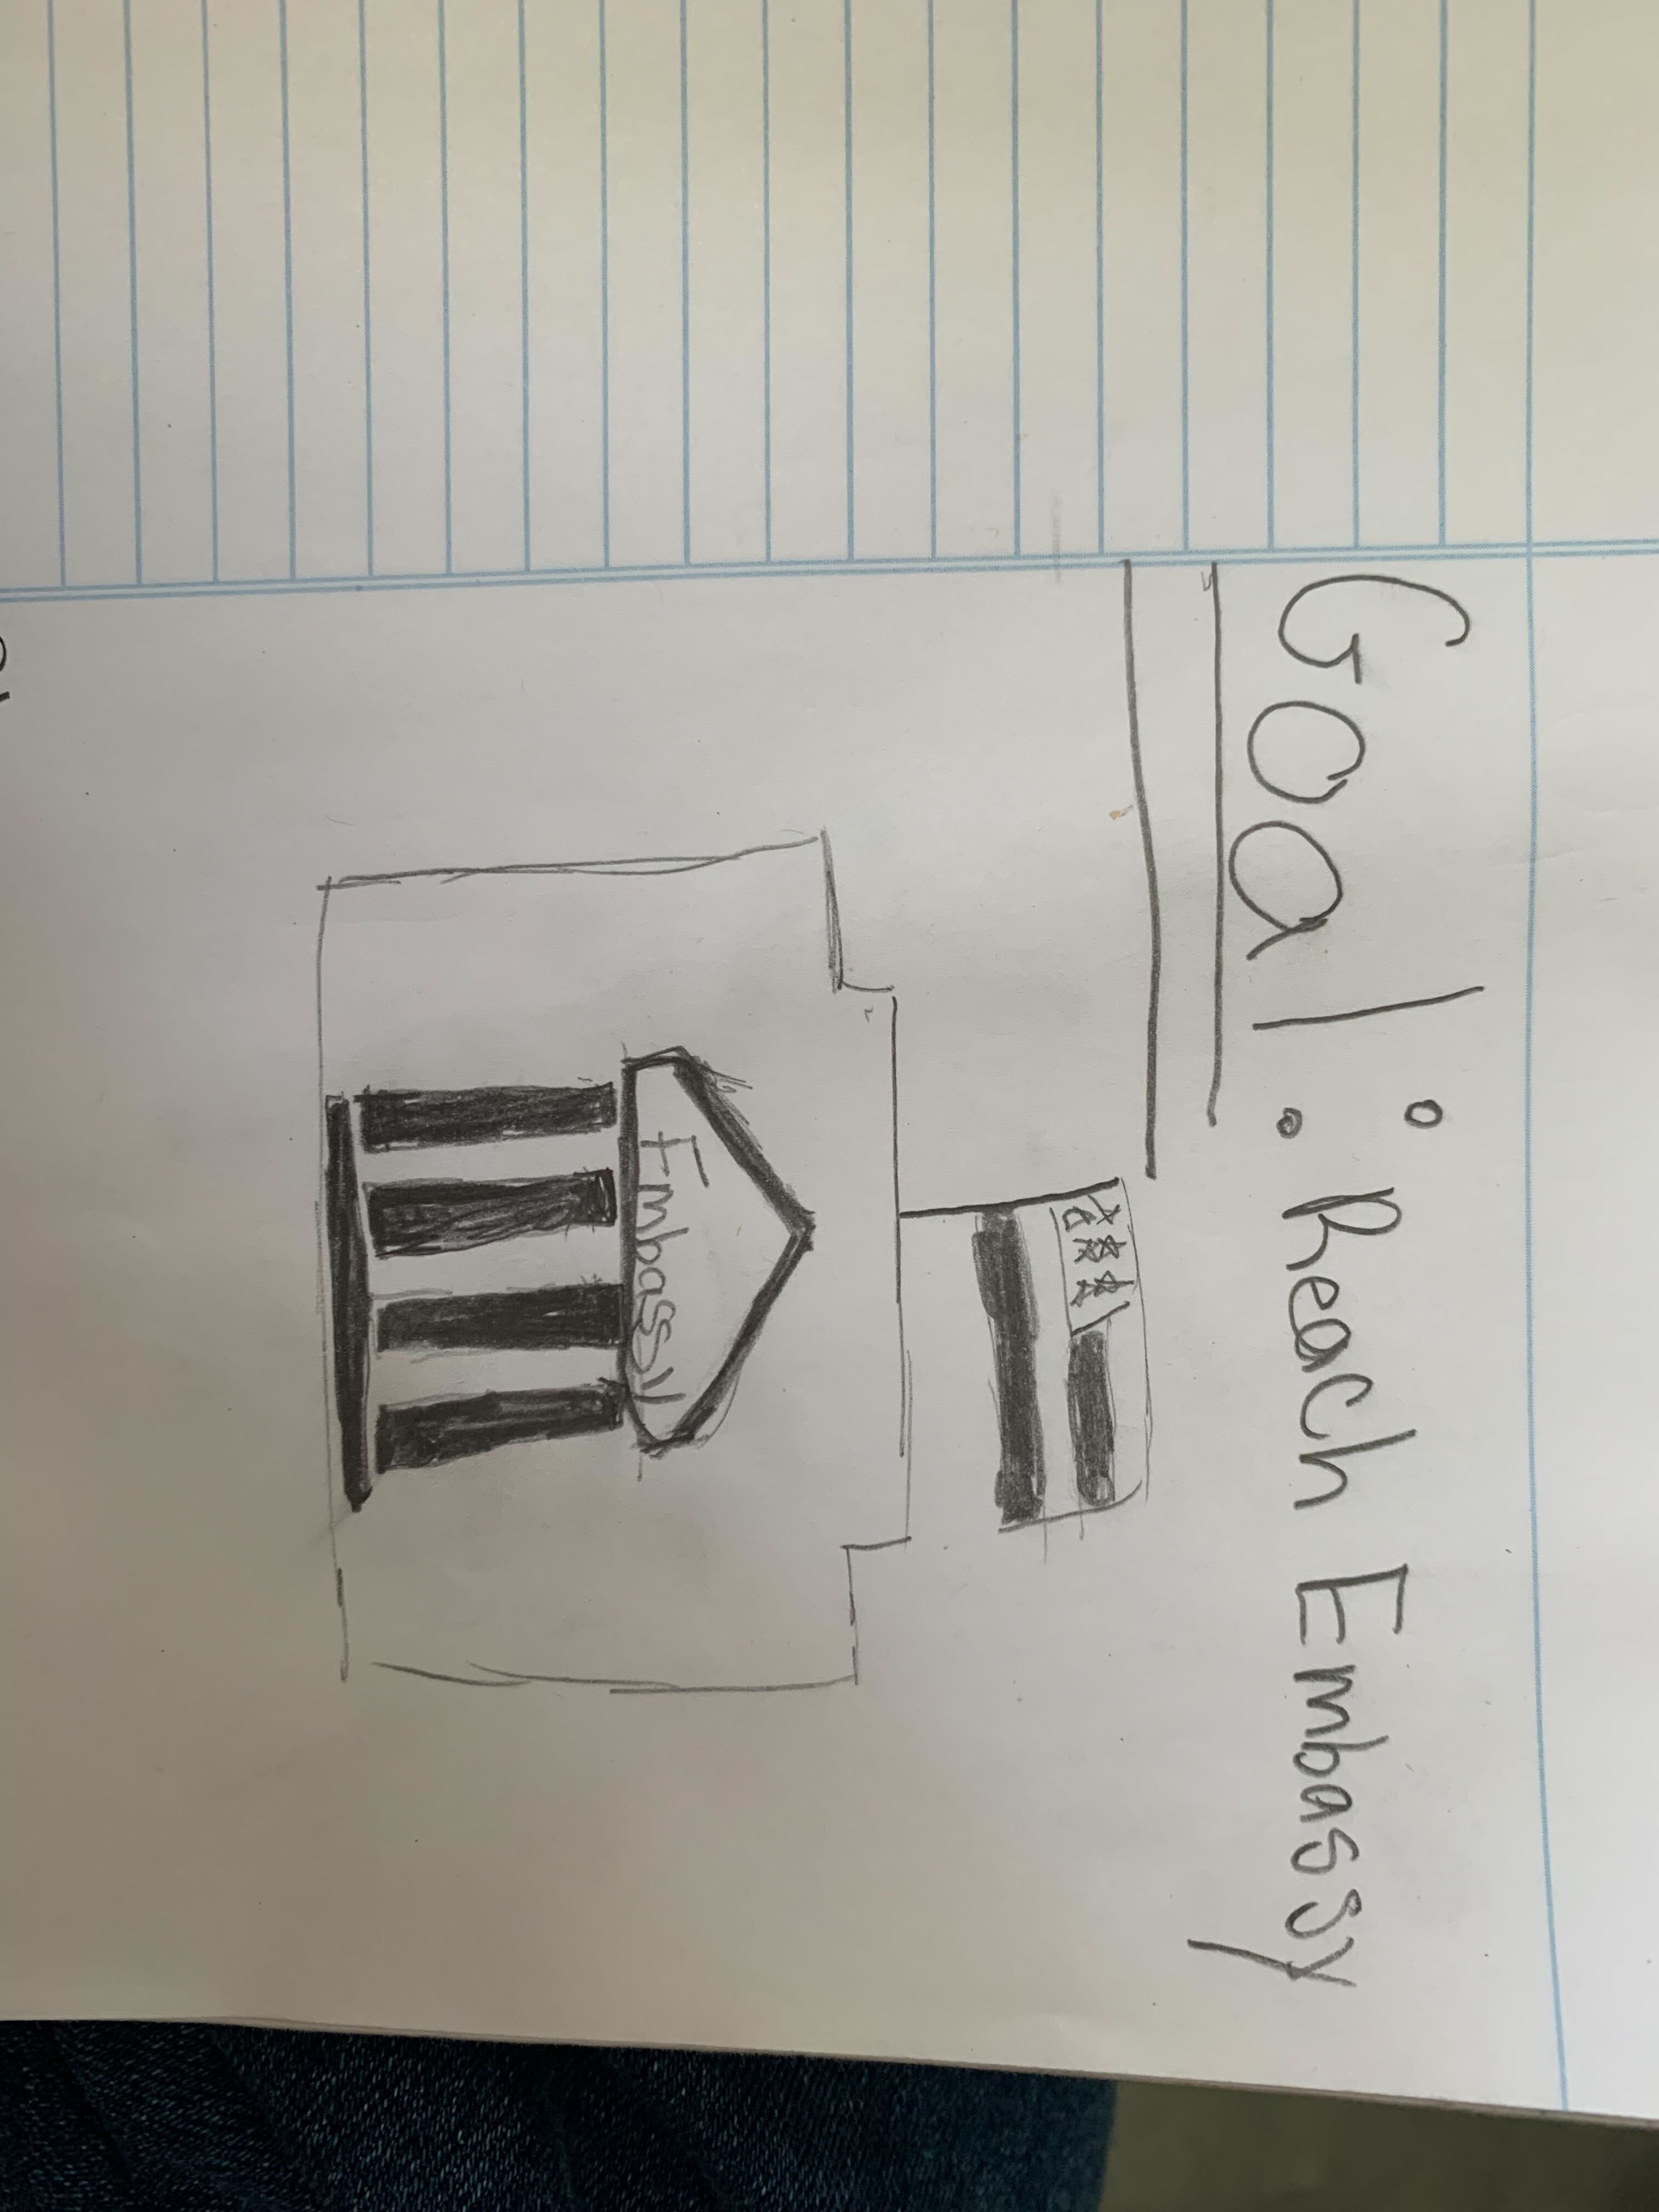 Goal: Reach Embassy
Embassy